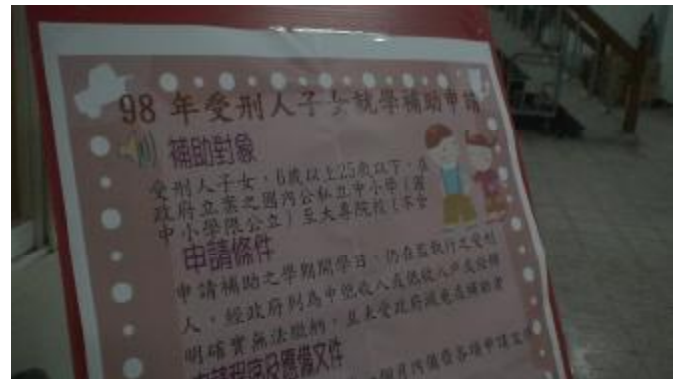 98 年受刑人子女就學補助申請
補助對象
受刑人子女,6歲以上25歲以下,在
政府立案之國內公私立中小學(國
中小學限公立)至大專院校(不含
申請條件
申請補助之學期開學日,仍在監執行之受刑
人,經政府列為中低收入或低收入戶或經
明確實無法繳納,且未受政府減免或補助者
申請程序及應備文件
個月內備齊各項申請文件